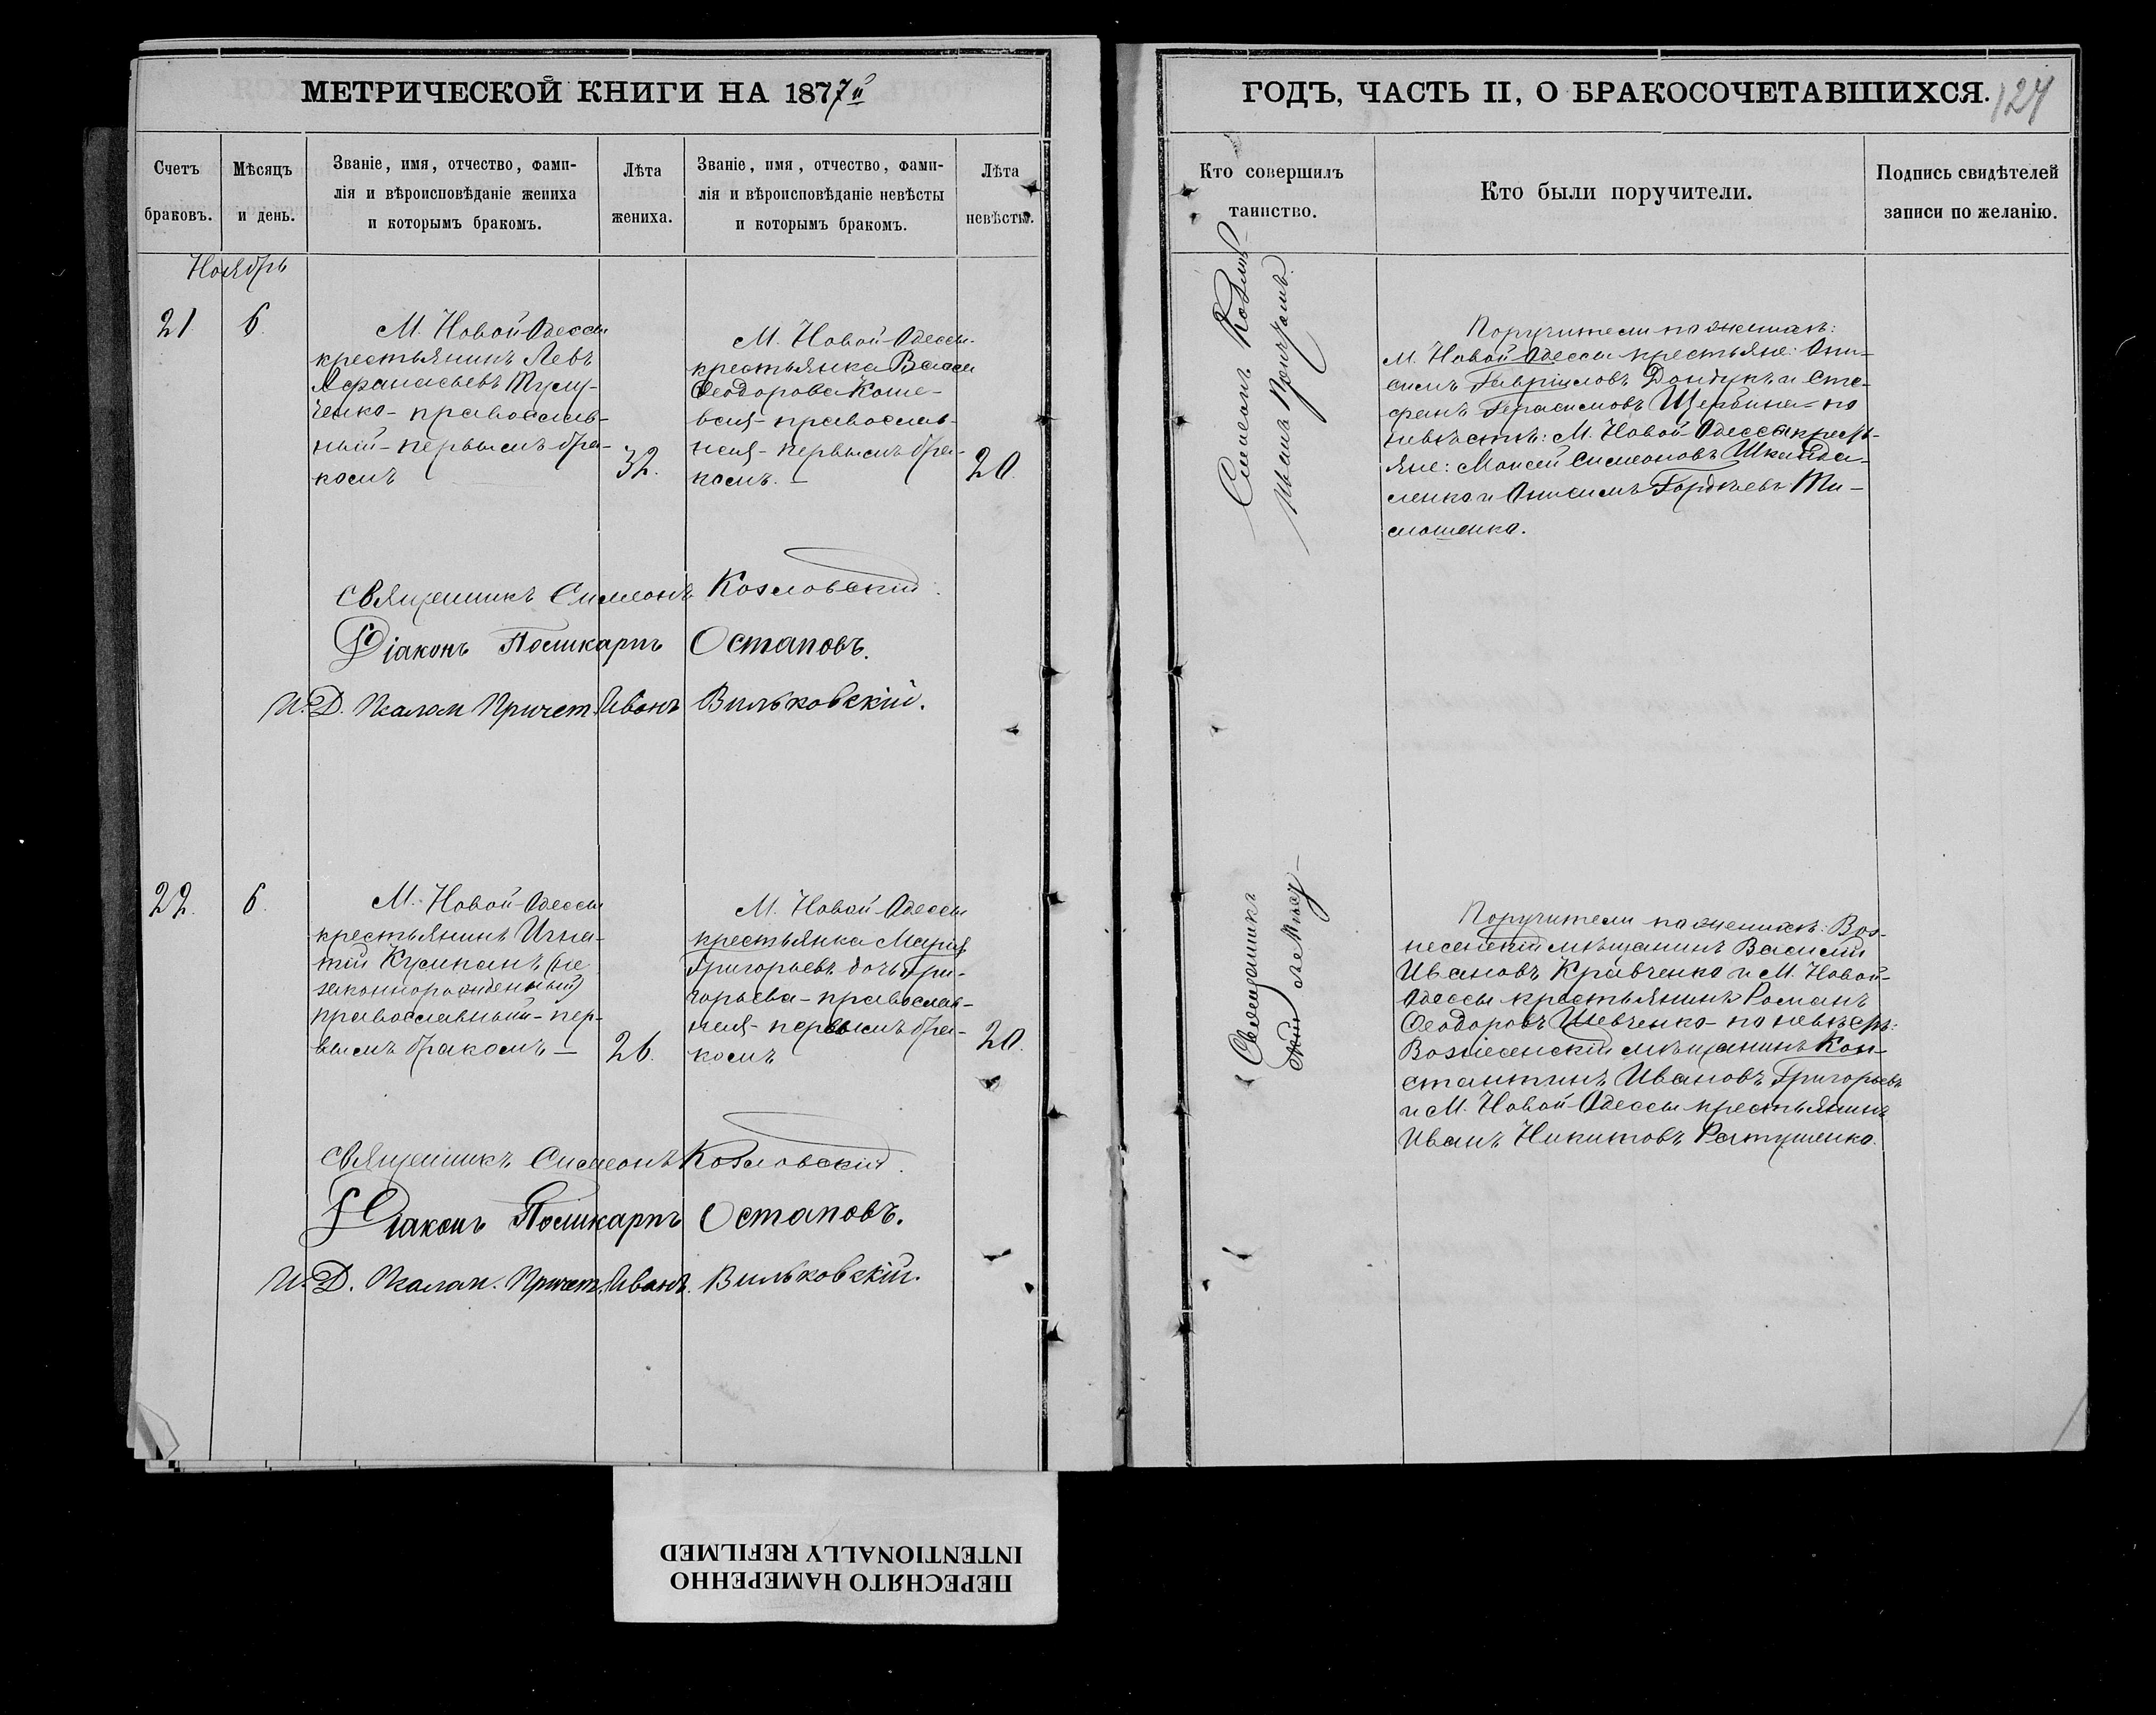 МЕТРИЧЕСКОЙ КНИГИ НА 1877й
Счетъ браковъ.
Мѣсяцъ и день.
Званіе, имя, отчество, фами-
лія и вѣроисповѣданіе жениха
и которымъ бракомъ.
Лѣта жениха.
Званіе, имя, отчество, фами-
лія и вѣроисповѣданіе невѣсты
и которымъ бракомъ.
Лѣта невѣсты.
Ноябрь
21
6.
М. Новой-Одессы
крестьянинъ Левъ
Афанасьевъ
ченко - православ-
ный - первымъ бра-
комъ
32.
М. Новой-Одессы
крестьянка
Ѳеодорова Коше-
вая - православ-
ная - первымъ бра-
комъ. -
20.
Священникъ Симеонъ Козловскій.
Діаконъ Поликарпъ Остаповъ.
И. Д. Псалом Причет. Иванъ Вильковскій.
22.
6.
М. Новой-Одессы
крестьянинъ Игна-
тій (не
законнорожденный)
православный - пер-
вымъ бракомъ -
26.
М. Новой-Одессы
крестьянка Марія
Григорьевъ дочь Гри-
горьева - православ-
ная - первымъ бра-
комъ
20.
Священникъ Симеонъ Козловскій.
Діаконъ Поликарпъ Остаповъ.
И. Д. Псалом. Причет. Иванъ. Вильковскій.
ГОДЪ, ЧАСТЬ II, О БРАКОСОЧЕТАВШИХСЯ.
124
Кто совершилъ
таинство.
Кто были поручители.
Подпись свидѣтелей
записи по желанію.
Священникъ
Симеонъ Козлов-
скій
Поручители по женихѣ:
М. Новой Одессы крестьяне: Они-
симъ Гавріиловъ Дондукъ и Сте-
фанъ Герасимовъ Щербина - по
невѣстѣ: М. Новой-Одессы кресть-
яне: Моисей Симеоновъ
ленко и Онисимъ Гордѣевъ Ти-
мошенко.
Поручители по женихѣ: Воз-
несенскій мѣщанинъ Василій
Ивановъ Кравченко и М. Новой-
Одессы крестьянинъ Романъ
Ѳеодоровъ Шевченко - по невѣстѣ:
Вознесенскій мѣщанинъ Кон-
стантинъ Ивановъ Григорьевъ
и М. Новой-Одессы крестьянинъ
Иванъ Никитовъ Ратушенко.
ПЕРЕСНЯТО НАМЕРЕННО
INTENTIONALLY REFILMED